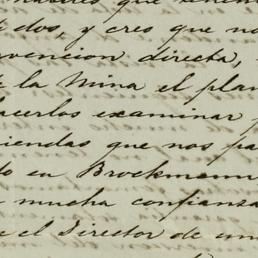 dos, y creo que no
vencion directa,
la Mina el plan
hacerlos examinar
iendas que nos pa
do en Brockmann
mucha confianza
e el Director de un